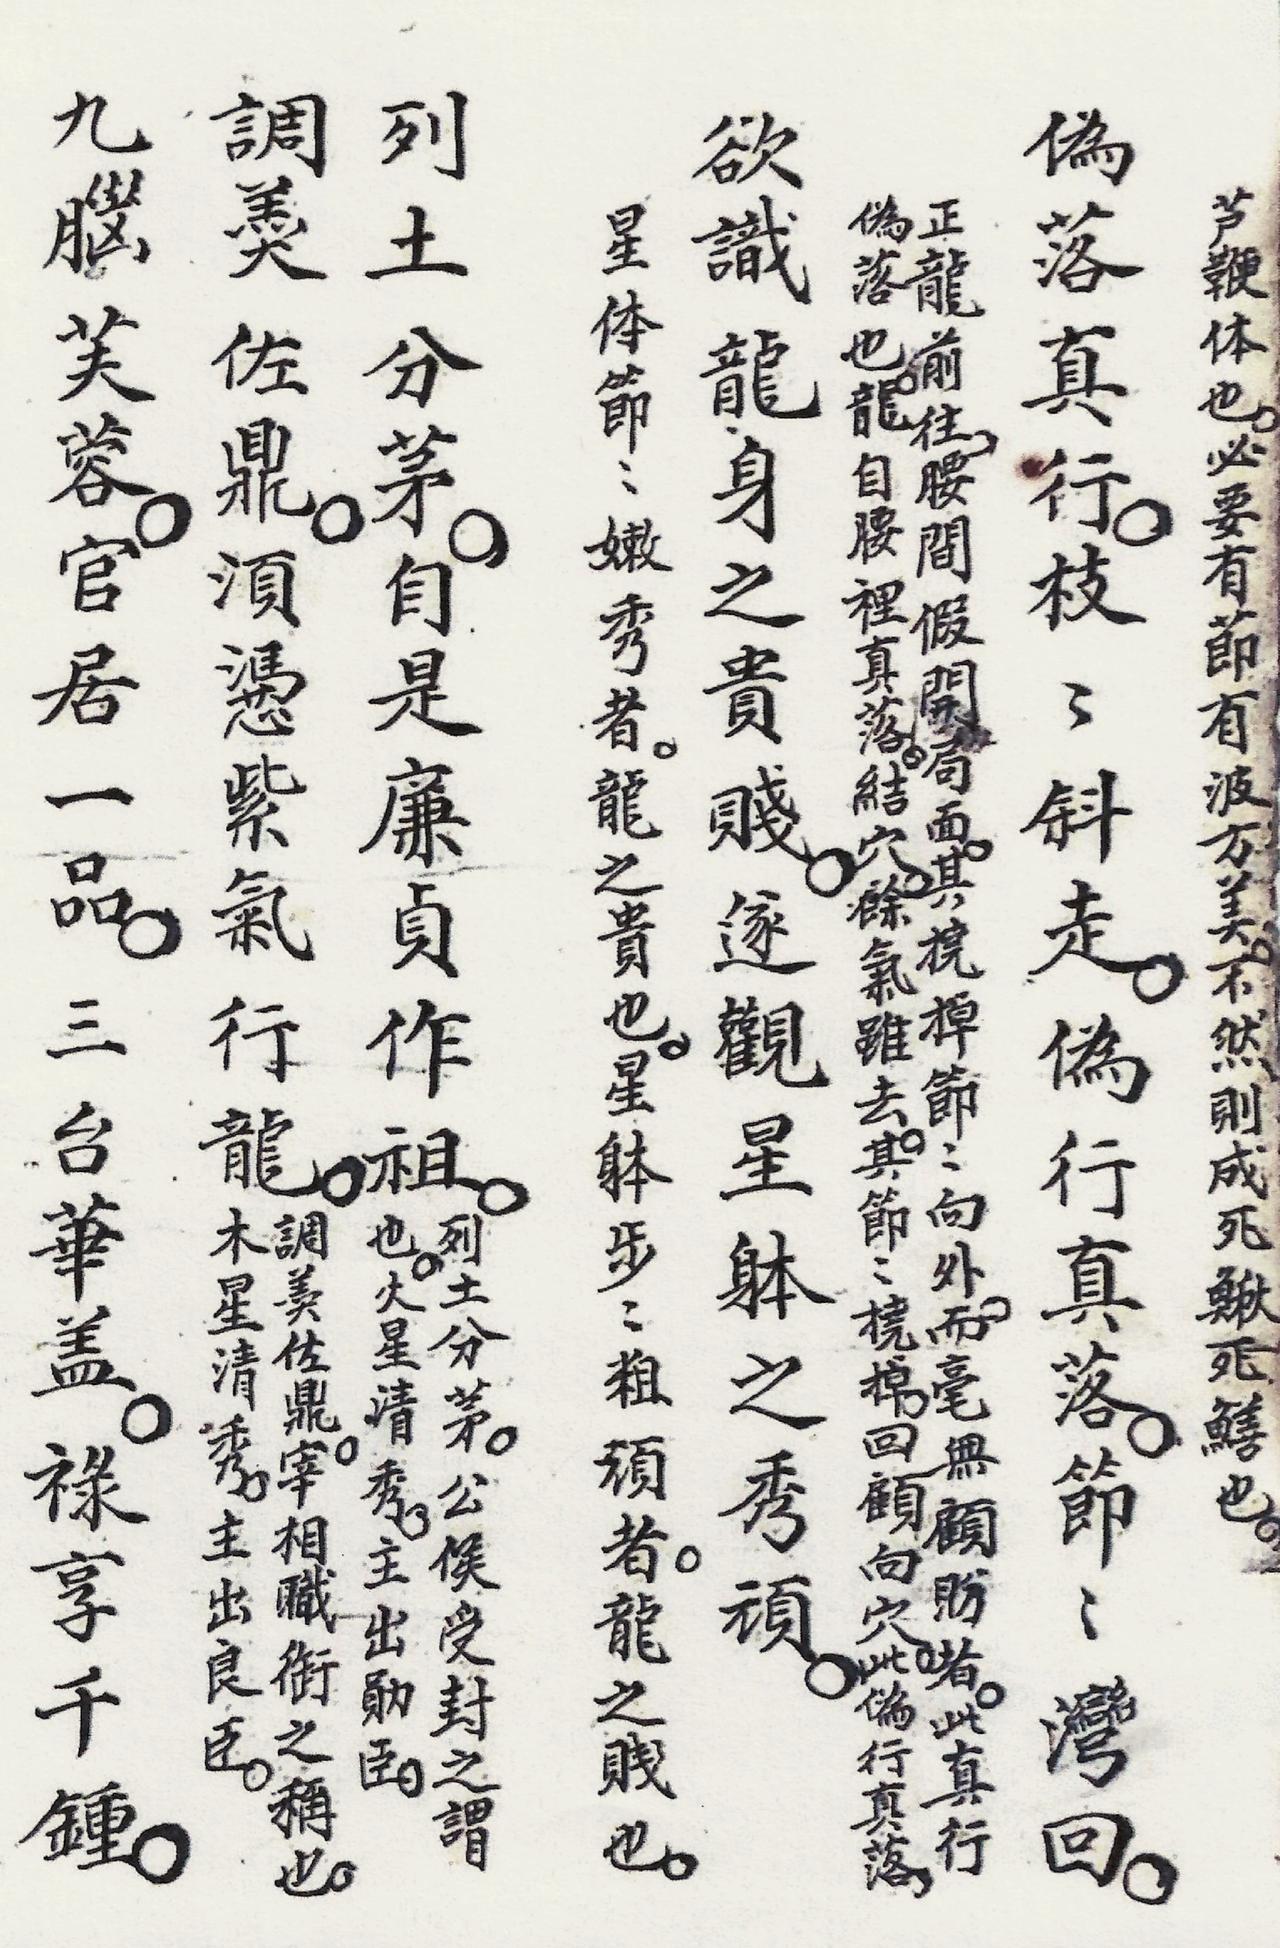 芦鞭体也。必要有節有波方美。不然則成死鰍死鱔也。
偽落真行。枝〻斜走。偽行真落。節〻灣回。
正龍前往，腰間假開局面。其橈棹節〻向外。而毫無顧盼者。此真行
偽落也。龍自腰裡真落。結穴。餘氣雖去。其節〻橈棹。回顧向穴。此偽行真落，
欲識龍身之貴賤。遂觀星躰之秀頑。
星体節〻嫩秀者。龍之貴也。星躰步〻粗頑者。龍之賤也。
列土分茅。自是廉貞作祖。
列土分茅。公侯受封之謂
也。火星清秀。主出勛臣。
調羮佐鼎。須憑紫氣行龍。
調羮佐鼎。宰相職銜之稱也。
木星清秀。主出良臣。
九腦芙蓉。官居一品。三台華盖。祿享千鍾。